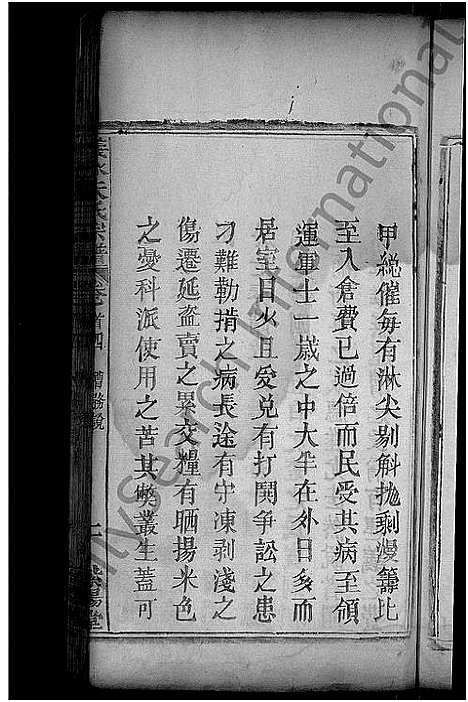 甲總催每有淋尖剔斛拋剩漫籌比
至入倉費已過倍而民受其病至領
運軍士一歲之中大半在外日多而
居室日少且爱兌有打鬨爭訟之患
刁難勒掯之病長途有守凍剥淺之
傷遷延盗賣之累交糧有晒揚米色
之憂科派使用之苦其弊叢生蓋可
氏宗譜
卷首四
漕務說
堂
MySearch International